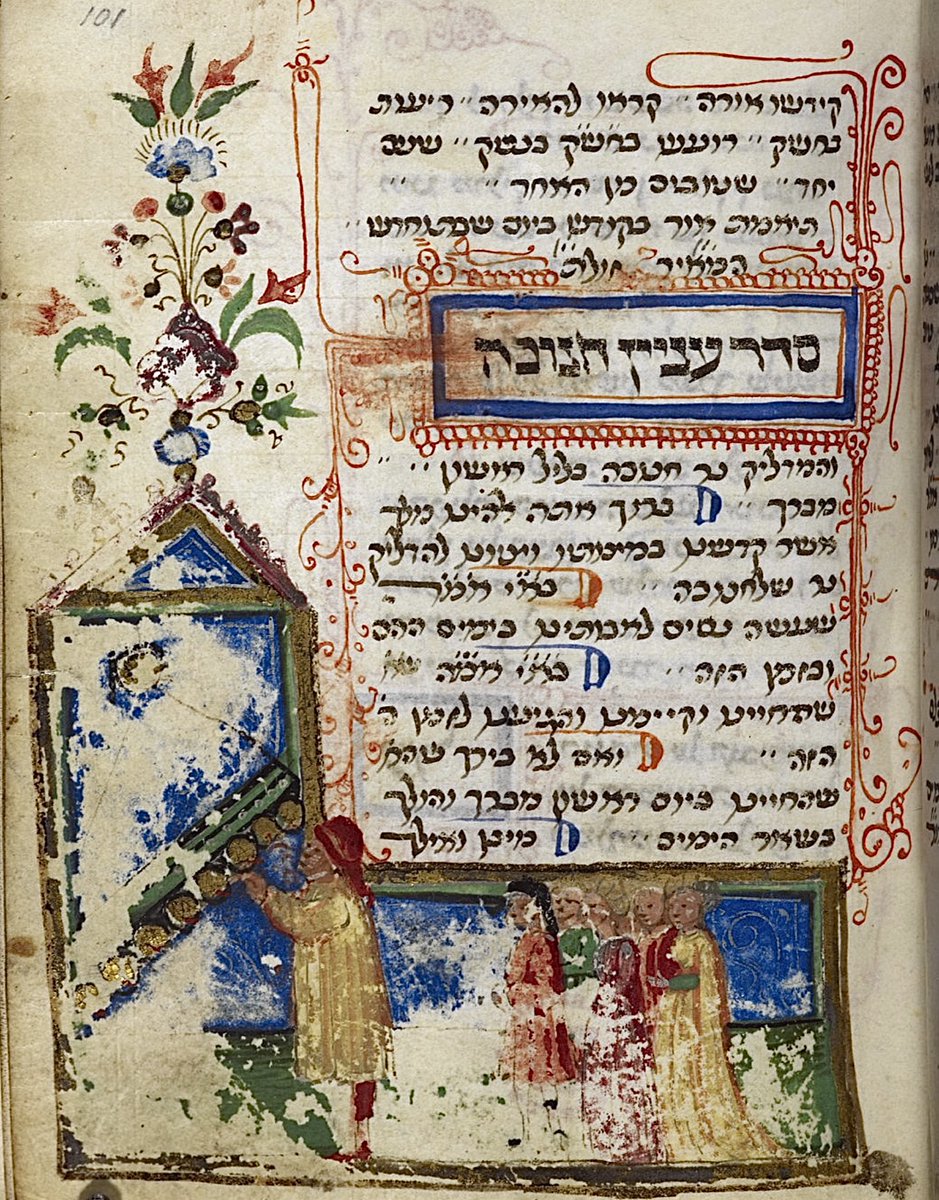 101
קידשו אורה קראו להאירה
בחשק
יחד שטובים מן האחר
בקודש ביום
המאיר
סדר ענין חנוכה
והמדליק נר חנוכה בליל ראישון
מברך ברוך אתה להינו מלך
אשר קדשנו במיצותיו וציונו להדליק
נר שלחנוכה בא״י אמ״ה
שעשה נסים לאבותינו בימים ההם
ובזמן הזה בא״י אמ״ה
שהחיינו וקיימנו והגיענו לזמן ה
הזה ואם לא בירך שהח
שהחיינו ביום ראשון מברך והולך
בשאר הימים מיכן ואילך